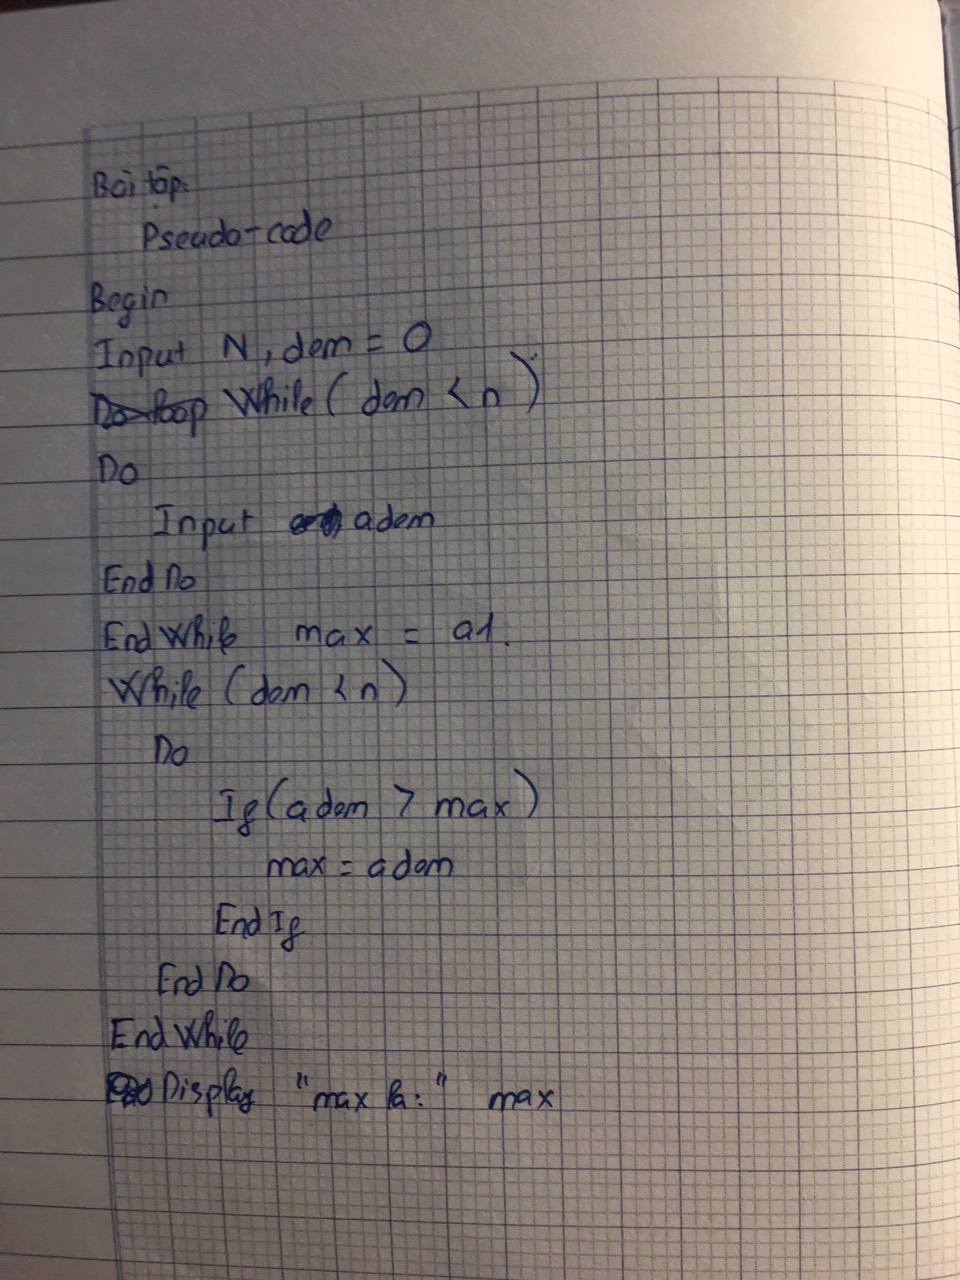 Bài tập:
Pseudo-code
Begin
Input N, dem = 0
While (dem < n)
Do
Input adem
End Do
End While max = a1.
While (dem < n)
Do
If (adem > max)
max = adem
End If
End Do
End While
Display "max là:" max